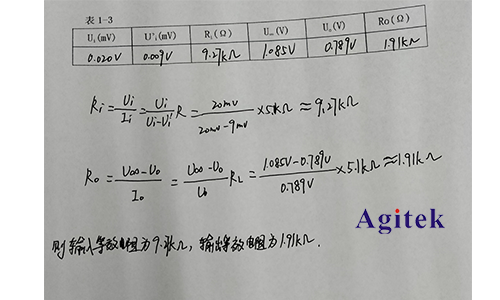 表 1-3
Ui(mV) U'i(mV) Ri(Ω) U∞(mV) Uo(mV) Ro(Ω)
0.020V 0.009V 9.27kΩ 1.085V 0.789V 1.91kΩ
Ri = Ui/Ii = Ui/(Ui-Ui') R = 20mV/(20mV-9mV) ×5.1kΩ ≈ 9.27kΩ
Ro = (U∞-Uo)/Io = (U∞-Uo)/Uo RL = (1.085V-0.789V)/0.789V ×5.1kΩ ≈ 1.91kΩ
Agitek
则输入等效电阻为9.27kΩ, 输出等效电阻为1.91kΩ.